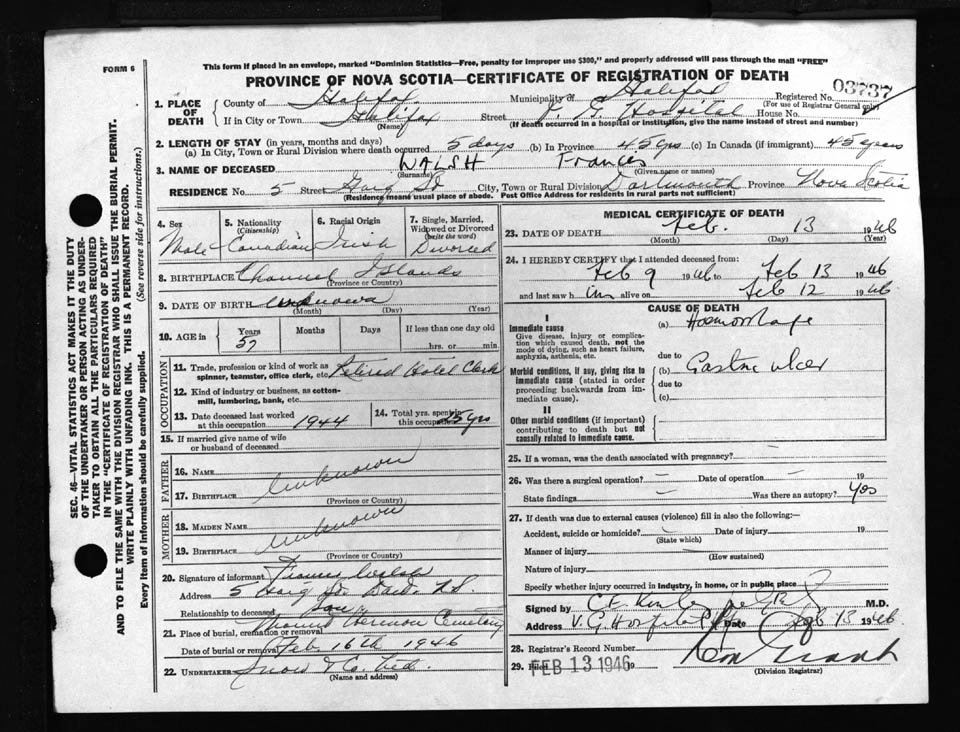 This form if placed in an envelope, marked "Dominion Statistics—Free, penalty for improper use $300," and properly addressed will pass through the mail "FREE"
FORM 6
PROVINCE OF NOVA SCOTIA—CERTIFICATE OF REGISTRATION OF DEATH
03737
1. PLACE OF DEATH
County of Halifax Municipality of Halifax Registered No.
(For use of Registrar General only)
If in City or Town Halifax Street V. G. Hospital House No.
(Name) (If death occurred in a hospital or institution, give the name instead of street and number)
2. LENGTH OF STAY (in years, months and days)
(a) In City, Town or Rural Division where death occurred 5 days (b) In Province 45 yrs (c) In Canada (if immigrant) 45 years
3. NAME OF DECEASED WALSH Frances
(Surname) (Given name or names)
RESIDENCE No. 5 Street St City, Town or Rural Division Dartmouth Province Nova Scotia
(Residence means usual place of abode. Post Office Address for residents in rural parts not sufficient)
4. Sex Male
5. Nationality (Citizenship) Canadian
6. Racial Origin Irish
7. Single, Married, Widowed or Divorced (write the word) Divorced
8. BIRTHPLACE Channel Islands
(Province or Country)
9. DATE OF BIRTH unknown
(Month) (Day) (Year)
10. AGE in Years Months Days If less than one day old
57 hrs. or min.
OCCUPATION
11. Trade, profession or kind of work as spinner, teamster, office clerk, etc. Retired Hotel Clerk
12. Kind of industry or business, as cotton-mill, lumbering, bank, etc.
13. Date deceased last worked at this occupation 1944
14. Total yrs. spent in this occupation 25 yrs
15. If married give name of wife or husband of deceased
FATHER
16. NAME unknown
17. BIRTHPLACE
(Province or Country)
MOTHER
18. MAIDEN NAME unknown
19. BIRTHPLACE
(Province or Country)
20. Signature of informant Walsh
Address 5 N.S.
Relationship to deceased Son
21. Place of burial, cremation or removal Mount Hermon Cemetery
Date of burial or removal Feb 16th 1946
22. UNDERTAKER Snow & Co. Ltd.
(Name and address)
MEDICAL CERTIFICATE OF DEATH
23. DATE OF DEATH Feb. 13 1946
(Month) (Day) (Year)
24. I HEREBY CERTIFY that I attended deceased from:
Feb 9 1946 to Feb 13 1946
and last saw h im alive on Feb 12 1946
CAUSE OF DEATH
I
Immediate cause (a) Haemorrhage
Give disease, injury or complication which caused death, not the mode of dying, such as heart failure, asphyxia, asthenia, etc.
due to
Morbid conditions, if any, giving rise to immediate cause (stated in order proceeding backwards from immediate cause).
(b) Gastric ulcer
due to
(c)
II
Other morbid conditions (if important) contributing to death but not causally related to immediate cause.
25. If a woman, was the death associated with pregnancy?
26. Was there a surgical operation? – Date of operation – 19
State findings – Was there an autopsy? Yes
27. If death was due to external causes (violence) fill in also the following:—
Accident, suicide or homicide? Date of injury 19
(State which)
Manner of injury
(How sustained)
Nature of injury
Specify whether injury occurred in industry, in home, or in public place
Signed by M.D.
Address V. G. Hospital Date Feb 13 1946
28. Registrar's Record Number
29. Filed FEB 13 1946 19
(Division Registrar)
SEC. 46—VITAL STATISTICS ACT MAKES IT THE DUTY
OF THE UNDERTAKER OR PERSON ACTING AS UNDER-
TAKER TO OBTAIN ALL THE PARTICULARS REQUIRED
IN THE "CERTIFICATE OF REGISTRATION OF DEATH"
AND TO FILE THE SAME WITH THE DIVISION REGISTRAR WHO SHALL ISSUE THE BURIAL PERMIT.
WRITE PLAINLY WITH UNFADING INK. THIS IS A PERMANENT RECORD.
Every item of information should be carefully supplied. (See reverse side for instructions.)